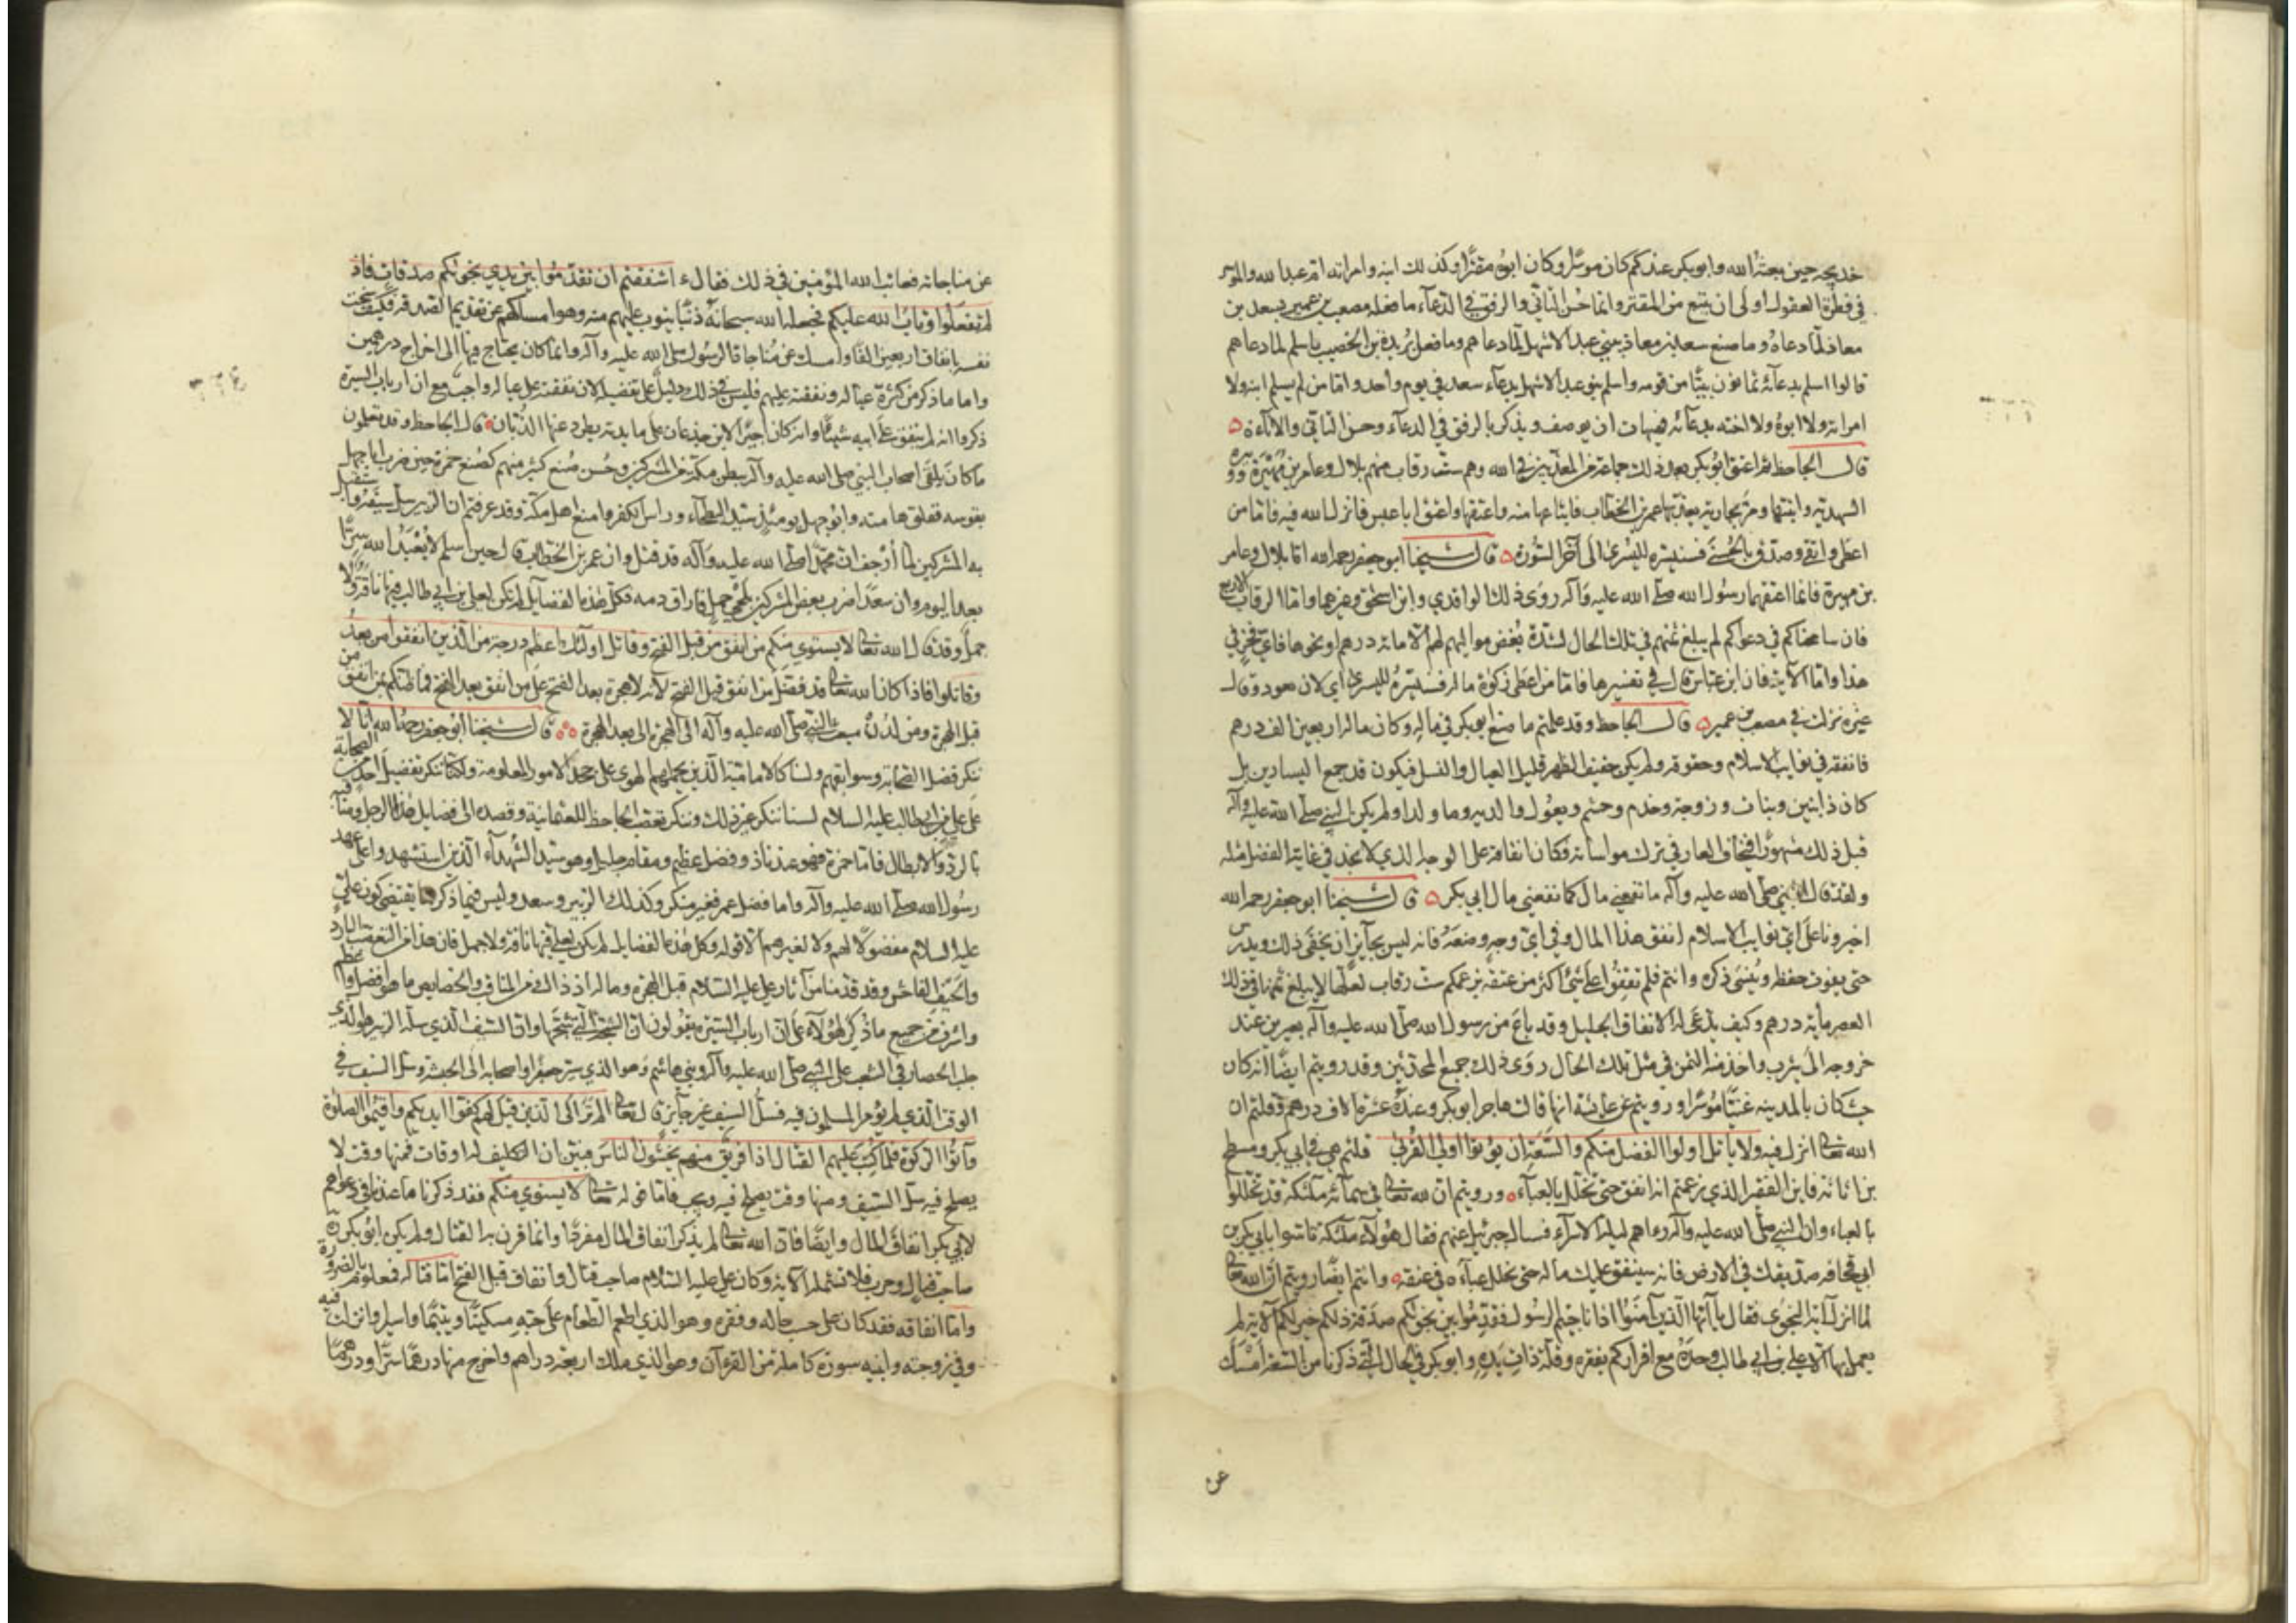 خديجة حين بعثه الله وابو بكر عندكم كان موسرا وكان ابوه مقترا وكذلك ابنه وامراته ام عبد الله والموسر
في فطرة العقول اولى ان يتبع من المقتر وانما حسن التاتي والرفق في الدعاء ما فعله مصعب بن عمير بسعد بن
معاذ لما دعاه وما صنع سعد بن معاذ ببني عبد الاشهل لما دعاهم وما فعل بريدة بن الحصيب باسلم لما دعاهم
قالوا اسلم بدعائه ثمانون بيتا من قومه واسلم بنو عبد الاشهل بدعاء سعد في يوم واحد واما من لم يسلم ابنه ولا
امراته ولا ابوه ولا اخته بدعائه فهيهات ان يوصف ويذكر بالرفق في الدعاء وحسن التاتي والاناءة
قال الجاحظ ثم اعتق ابو بكر بعد ذلك جماعة من المعذبين في الله وهم ست رقاب منهم بلال وعامر بن فهيرة وزنيرة
النهدية وابنتها ومر بجارية يعذبها عمر بن الخطاب فابتاعها منه واعتقها واعتق ابا عبس فانزل الله فيه فاما من
اعطى واتقى وصدق بالحسنى فسنيسره لليسرى الى آخر السورة قال شيخنا ابو جعفر رحمه الله اما بلال وعامر
بن فهيرة فانما اعتقهما رسول الله صلى الله عليه وآله روى ذلك الواقدي وابن اسحق وغيرهما واما الرقاب الاربع
فان سامحناكم في دعواكم لم يبلغ ثمنهم في تلك الحال لشدة بغض مواليهم لهم الا مائة درهم او نحوها فاي فخر في
هذا واما الآية فان ابن عباس قال في تفسيرها فاما من اعطى زكوة ماله فسنيسره لليسرى اي لان يعود وقال
غيره نزلت في مصعب بن عمير قال الجاحظ وقد علمتم ما صنع ابو بكر في ماله وكان ماله اربعين الف درهم
فانفقه في نوايب الاسلام وحقوقه ولم يكن خفيف الظهر قليل العيال والنسل فيكون قد جمع اليسارين بل
كان ذا بنين وبنات وزوجة وخدم وحشم ويعول والديه وما ولدا ولم يكن النبي صلى الله عليه وآله
قبل ذلك مشهورا فيخاف العار في ترك مواساته فكان انفاقه على الوجه الذي لا نجد في غاية الفضل مثله
ولقد قال النبي صلى الله عليه وآله ما نفعني مال كما نفعني مال ابي بكر قال شيخنا ابو جعفر رحمه الله
اخبرونا على اي نوايب الاسلام انفق هذا المال وفي اي وجه وضعه فانه ليس بجائز ان يخفى ذلك ويدرس
حتى يفوت حفظه وينسى ذكره وانتم فلم تقفوا على شئ اكثر من عتقه بزعمكم ست رقاب لعلها لا يبلغ ثمنها في ذلك
العصر ماية درهم وكيف يدعى له الانفاق الجليل وقد باع من رسول الله صلى الله عليه وآله بعيرين عند
خروجه الى يثرب واخذ منه الثمن في مثل تلك الحال روى ذلك جميع المحدثين وقد رويتم ايضا انه كان
حيث كان بالمدينة غنيا موسرا ورويتم عن عائشة انها قالت هاجر ابو بكر وعنده عشرة الاف درهم وقلتم ان
الله تعالى انزل فيه ولا ياتل اولوا الفضل منكم والسعة ان يؤتوا اولي القربى قلتم هي في ابي بكر ومسطح
بن اثاثة فاين الفقر الذي زعمتم انه انفق حتى تخلل بالعباء ورويتم ان لله تعالى في سمائه ملئكة قد تخللوا
بالعباء وان النبي صلى الله عليه وآله رءاهم ليلة الاسراء فسال جبرئيل عنهم فقال هؤلاء ملئكة تاسوا بابي بكر بن
ابي قحافة صديقك في الارض فانه سينفق عليك ماله حتى يخلل عباءه في عنقه وانتم ايضا رويتم ان الله تعالى
لما انزل آية النجوى فقال يا ايها الذين آمنوا اذا ناجيتم الرسول فقدموا بين يدي نجويكم صدقة ذلكم خير لكم الآية لم
يعمل بها الا علي بن ابي طالب وحده مع اقراركم بفقره وقلة ذات يده وابو بكر في الحال التي ذكرنا من السعة امسك
عن
عن مناجاته فعاتب الله المؤمنين في ذلك فقال ءاشفقتم ان تقدموا بين يدي نجويكم صدقات فاذ
لم تفعلوا وتاب الله عليكم فجعله الله سبحانه ذنبا يتوب عليهم منه وهو امساكهم عن تقديم الصدقة فكيف سخت
نفسه بانفاق اربعين الفا وامسك عن مناجاة الرسول صلى الله عليه وآله وانما كان يحتاج فيها الى اخراج درهمين
واما ما ذكر من كثرة عياله ونفقته عليهم فليس في ذلك دليل على تفضيله لان نفقته على عياله واجب مع ان ارباب السيرة
ذكروا انه لم ينفق على ابيه شيئا وانه كان اجيرا لابن جذعان على مايدته يطرد عنها الذبان قال الجاحظ وقد تعلمون
ما كان يلقى اصحاب النبي صلى الله عليه وآله ببطن مكة من المشركين وحسن صنع كثير منهم كصنع حمزة حين ضرب ابا جهل
بقوسه ففلق هامته وابو جهل يومئذ سيد البطحاء وراس الكفر وامنع اهل مكة وقد عرفتم ان الزبير سل سيفه واستقبل
به المشركين لما ارجف ان محمدا صلى الله عليه وآله قد قتل وان عمر بن الخطاب قال حين اسلم لا يعبد الله سرا
بعد اليوم وان سعدا ضرب بعض المشركين بلحي جمل فاراق دمه فكل هذه الفضايل لم يكن لعلي بن ابي طالب فيها ناقة ولا
جمل وقد قال الله تعالى لا يستوي منكم من انفق من قبل الفتح وقاتل اولئك اعظم درجة من الذين انفقوا من بعد
وقاتلوا فاذا كان الله تعالى قد فضل من انفق قبل الفتح لانه لا هجرة بعد الفتح على من انفق بعد الفتح فما ظنكم بمن انفق من
قبل الهجرة ومن لدن مبعث النبي صلى الله عليه وآله الى الهجرة والى بعد الهجرة قال شيخنا ابو جعفر رحمه الله انا لا
ننكر فضل الصحابة وسوابقهم ولسنا كالامامية الذين يحملهم الهوى على جحد الامور المعلومة ولكنا ننكر تفضيل احد من الصحابة
على علي بن ابي طالب عليه السلام لسنا ننكر غير ذلك وننكر تعصب الجاحظ للعثمانية وقصده الى فضايل هذا الرجل ومناقبه
بالرد والابطال فاما حمزة فهو عندنا ذو فضل عظيم ومقام جليل وهو سيد الشهداء الذين استشهدوا على عهد
رسول الله صلى الله عليه وآله واما فضل عمر فغير منكر وكذلك الزبير وسعد وليس فيما ذكر ما يقتضي كون علي
عليه السلام مفضولا لهم ولا لغيرهم الا قوله وكل هذه الفضايل لم يكن لعلي فيها ناقة ولا جمل فان هذا من التعصب البارد
والحيف الفاحش وقد قدمنا من آثار علي عليه السلام قبل الهجرة وما له اذ ذاك من المناقب والخصايص ما هو افضل واعظم
واشرف من جميع ما ذكر لهؤلاء على ان ارباب السيرة يقولون ان الشجة التي شجها وان السيف الذي سله الزبير هو الذي
جلب الحصار في الشعب على النبي صلى الله عليه وآله وبني هاشم وهو الذي سير جعفرا واصحابه الى الحبشة وسل السيف في
الوقت الذي لم يؤمر المسلمون فيه بسل السيف غير جايز قال تعالى الم تر الى الذين قيل لهم كفوا ايديكم واقيموا الصلوة
وآتوا الزكوة فلما كتب عليهم القتال اذا فريق منهم يخشون الناس فتبين ان التكليف له اوقات فمنها وقت لا
يصلح فيه سل السيف ومنها وقت يصلح فيه ويجب فاما قوله تعالى لا يستوي منكم فقد ذكرنا ما عندنا في دعواهم
لابي بكر انفاق المال وايضا فان الله تعالى لم يذكر انفاق المال مفردا وانما قرن به القتال ولم يكن ابو بكر
صاحب قتال وحرب فلا تشمله الآية وكان علي عليه السلام صاحب قتال وانفاق قبل الفتح اما قتاله فمعلوم بالضرورة
واما انفاقه فقد كان على حسب حاله وفقره وهو الذي اطعم الطعام على حبه مسكينا ويتيما واسيرا وانزلت فيه
وفي زوجته وابنيه سورة كاملة من القرءآن وهو الذي ملك اربعة دراهم واخرج منها درهما سرا ودرهما